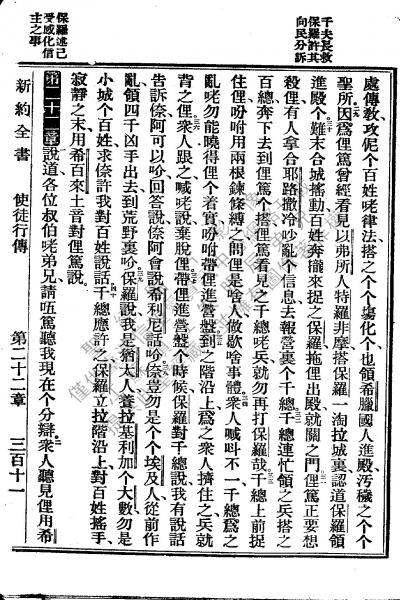 千夫長救
保羅許其
向民分訴
保羅述己
受感化信
主之事
處傳教攻伲個百姓咾律法搭之個個塲化个也領希臘國人進殿汚穢之个个
聖所因爲俚篤曾經看見以弗所人特羅非摩搭保羅一淘拉城裏認道保羅領
進殿个難末合城搖動百姓奔攏來捉之保羅拖俚出殿就關之門俚篤正要想
殺俚有人拿合耶路撒冷吵亂个信息去報營裏个千總千總連忙領之兵搭之
百總奔下去到俚篤个搭俚篤看見之千總咾兵就勿再打保羅哉千總上前捉
住俚吩咐用兩根鍊條縛之問俚是啥人做歇啥事體衆人喊呌不一千總爲之
亂咾勿能曉得俚个着實吩咐帶俚進營盤到之階沿上爲之衆人擠住之兵就
背之俚衆人跟之喊咾說棄脫俚帶俚進營盤个時候保羅對千總說我有說話
告訴倷阿可以吤回答說倷阿會說希利尼話吤倷豈勿是个个埃及人從前作
亂領四千凶手出去到荒野裏吤保羅說我是猶太人養拉基利加个大數勿是
小城个百姓求倷許我對百姓說話千總應許之保羅立拉階沿上對百姓搖手
寂靜之末用希百來土音對俚篤說
第二十二章說道各位叔伯咾弟兄請唔篤聽我現在个分辯衆人聽見俚用希
新約全書 使徒行傳 第二十二章 三百十一